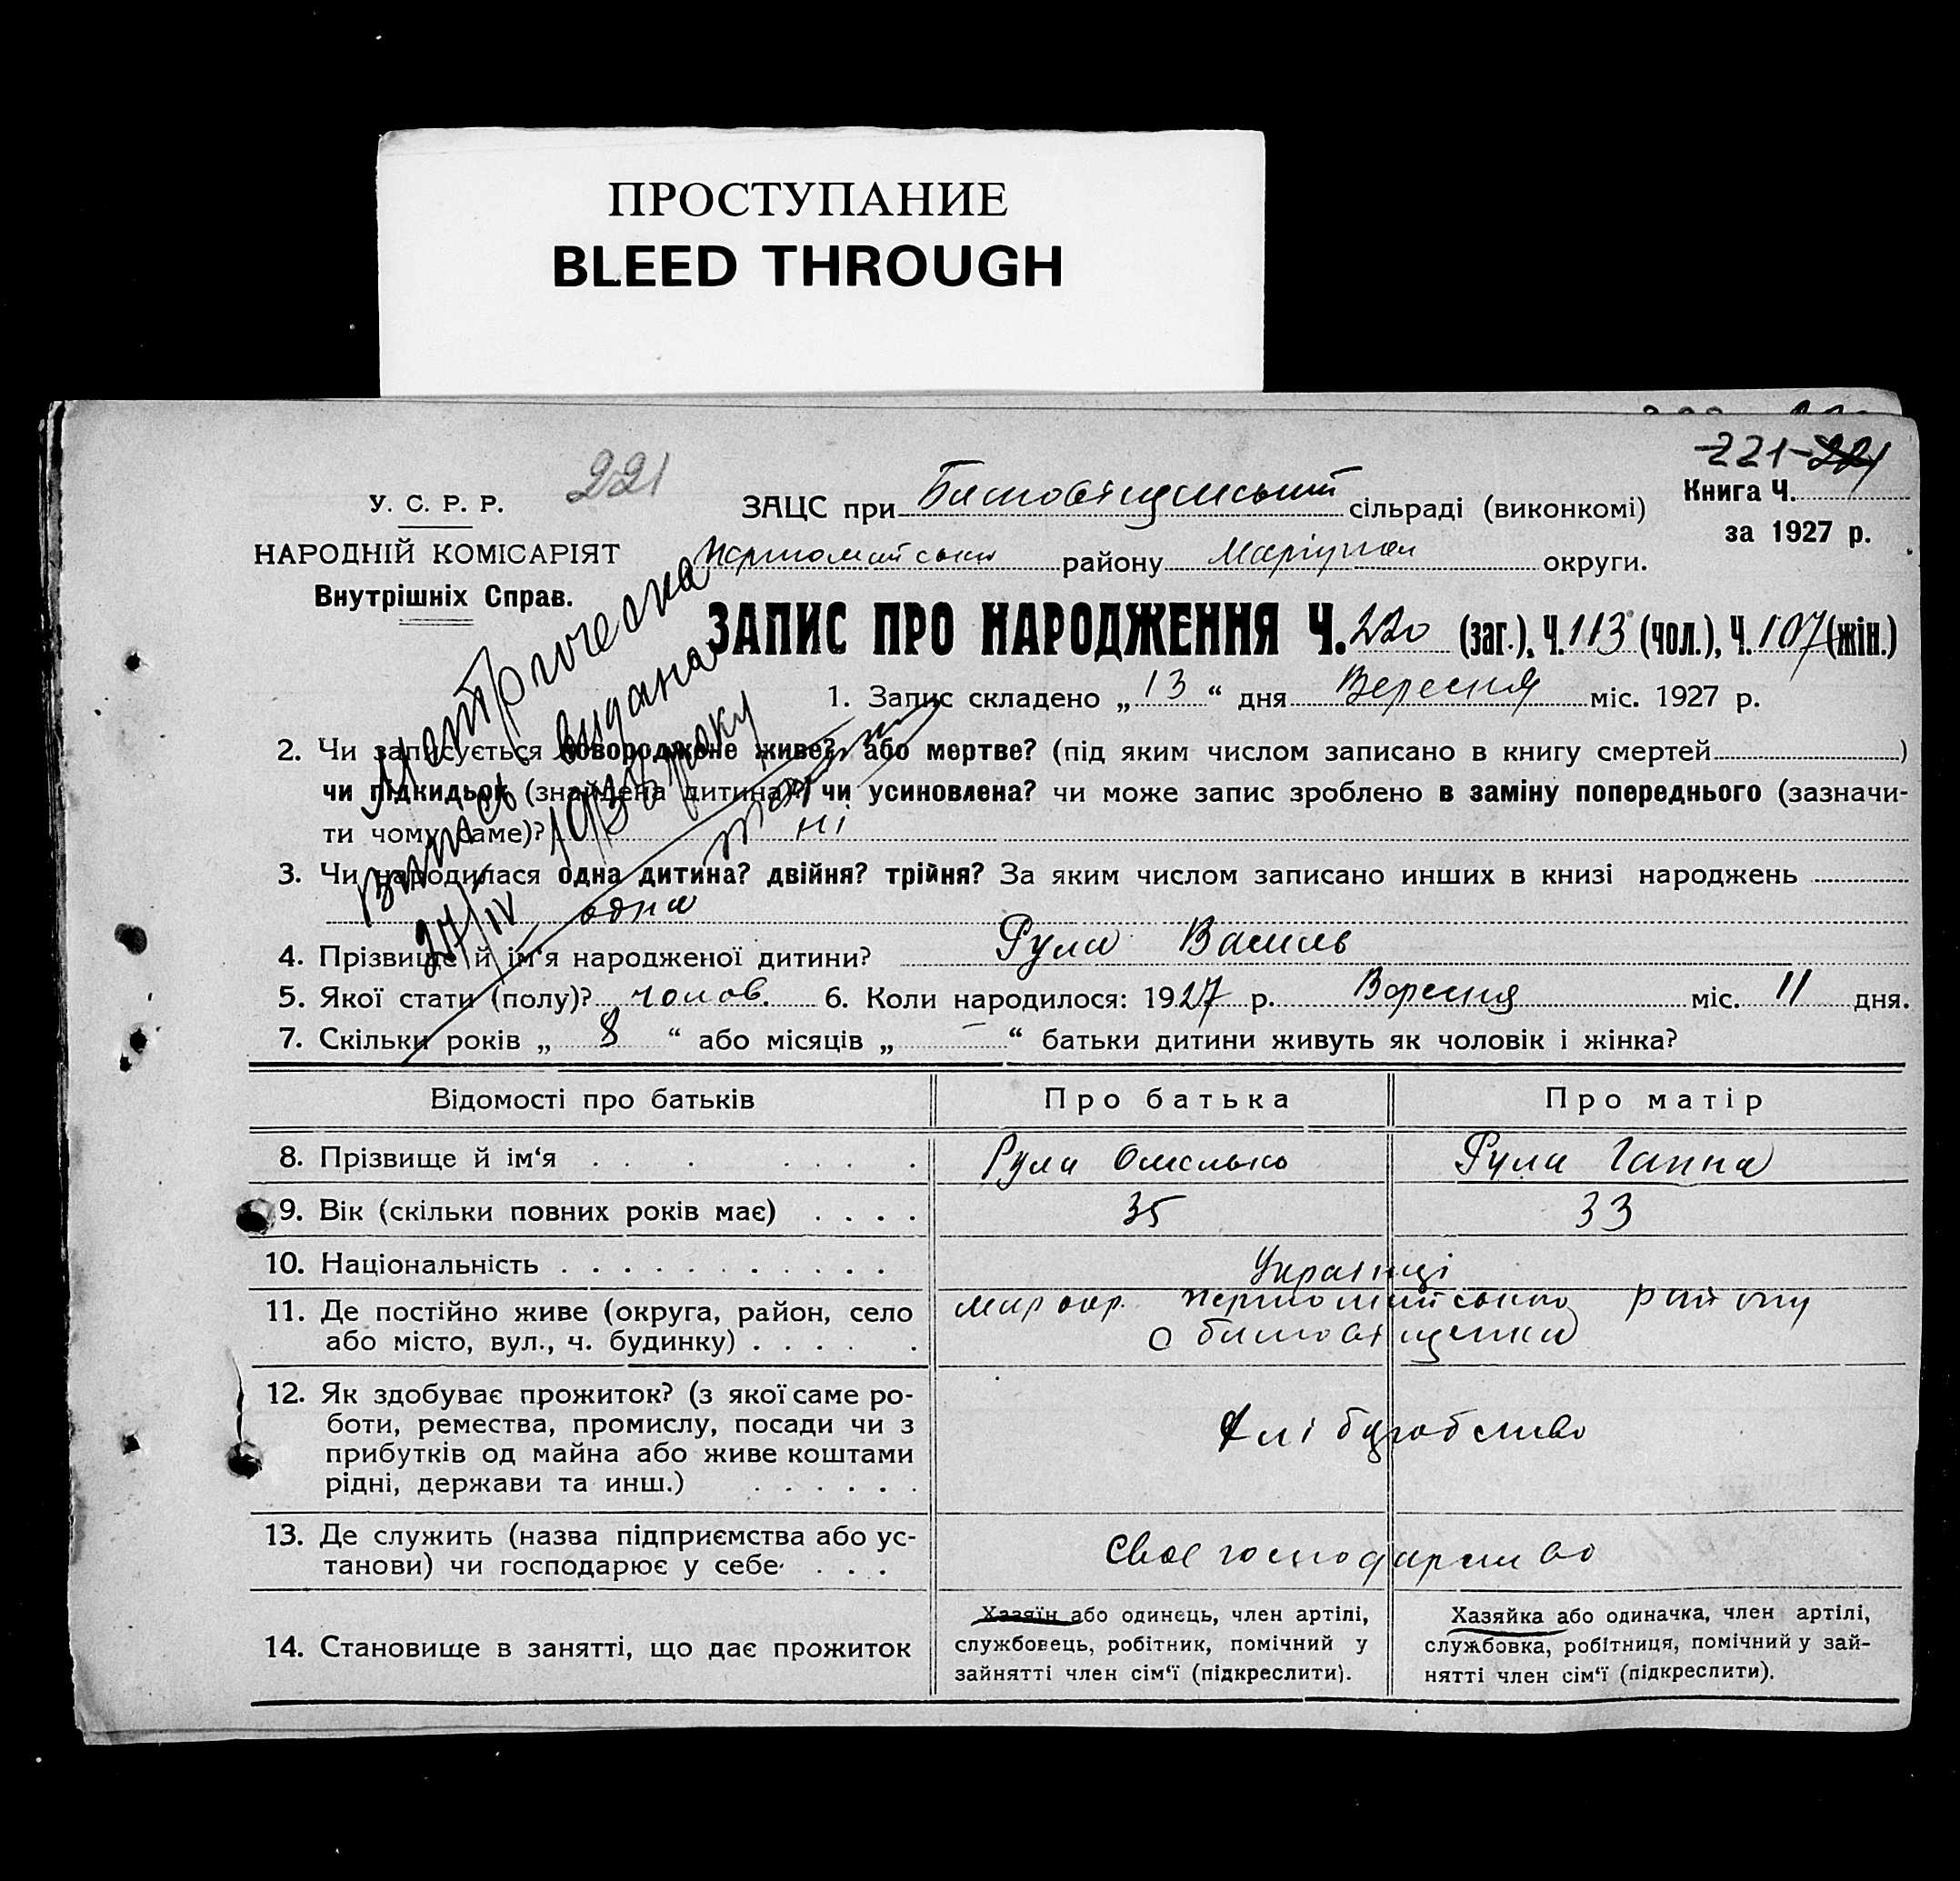 ПРОСТУПАНИЕ
BLEED THROUGH
221-221
221
У. С. Р. Р.
НАРОДНІЙ КОМІСАРІЯТ
Внутрішніх Справ.
ЗАЦС при сільраді (виконкомі)
Книга Ч.
за 1927 р.
району Маріупол округи.
ЗАПИС ПРО НАРОДЖЕННЯ Ч. 220 (заг.), Ч. 113 (чол.), Ч. 107 (жін.)
Метрическа
випись видана
27/IV
1. Запис складено „ 13 “ дня Вересня міс. 1927 р.
2. Чи записується новороджене живе? або мертве? (під яким числом записано в книгу смертей )
чи підкидьок (знайдена дитина)? чи усиновлена? чи може запис зроблено в заміну попереднього (зазначи-
ти чому саме)? ні
3. Чи народилася одна дитина? двійня? трійня? За яким числом записано инших в книзі народжень
одна
4. Прізвище й ім‘я народженої дитини? Рула Василь
5. Якої стати (полу)? чолов. 6. Коли народилося: 1927 р. Вересня міс. 11 дня.
7. Скільки років „ 8 “ або місяців „ — “ батьки дитини живуть як чоловік і жінка?
Відомості про батьків Про батька Про матір
8. Прізвище й ім‘я Рула Омелько Рула Ганна
9. Вік (скільки повних років має) 35 33
10. Національність Українці
11. Де постійно живе (округа, район, село Мар окр. Першомайського району
або місто, вул., ч. будинку)
12. Як здобуває прожиток? (з якої саме ро-
боти, ремества, промислу, посади чи з Хліборобство
прибутків од майна або живе коштами
рідні, держави та инш.)
13. Де служить (назва підприємства або ус- Своє господарство
танови) чи господарює у себе
14. Становище в занятті, що дає прожиток
Хазяїн або одинець, член артілі,
службовець, робітник, помічний у
зайнятті член сім‘ї (підкреслити).
Хазяйка або одиначка, член артілі,
службовка, робітниця, помічний у зай-
нятті член сім‘ї (підкреслити).